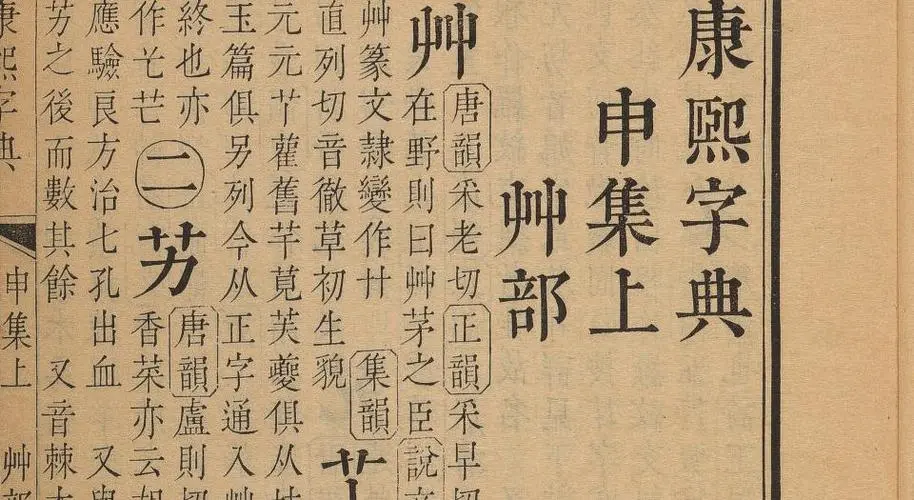 康熙字典
申集上
艸部
艸
唐韻采老切正韻采早切
在野則曰艸茅之臣說
艸篆文隸變作廾集韻
直列切音徹草初生貌
元元雚舊芊莧芙夔俱从
玉篇俱另列今从正字通入艸
終也亦
作芒
二
艻
唐韻盧則切
香菜亦云胡
應驗良方治七孔出血又
芳之後而數其餘又音棘
康熙字典申集上艸部